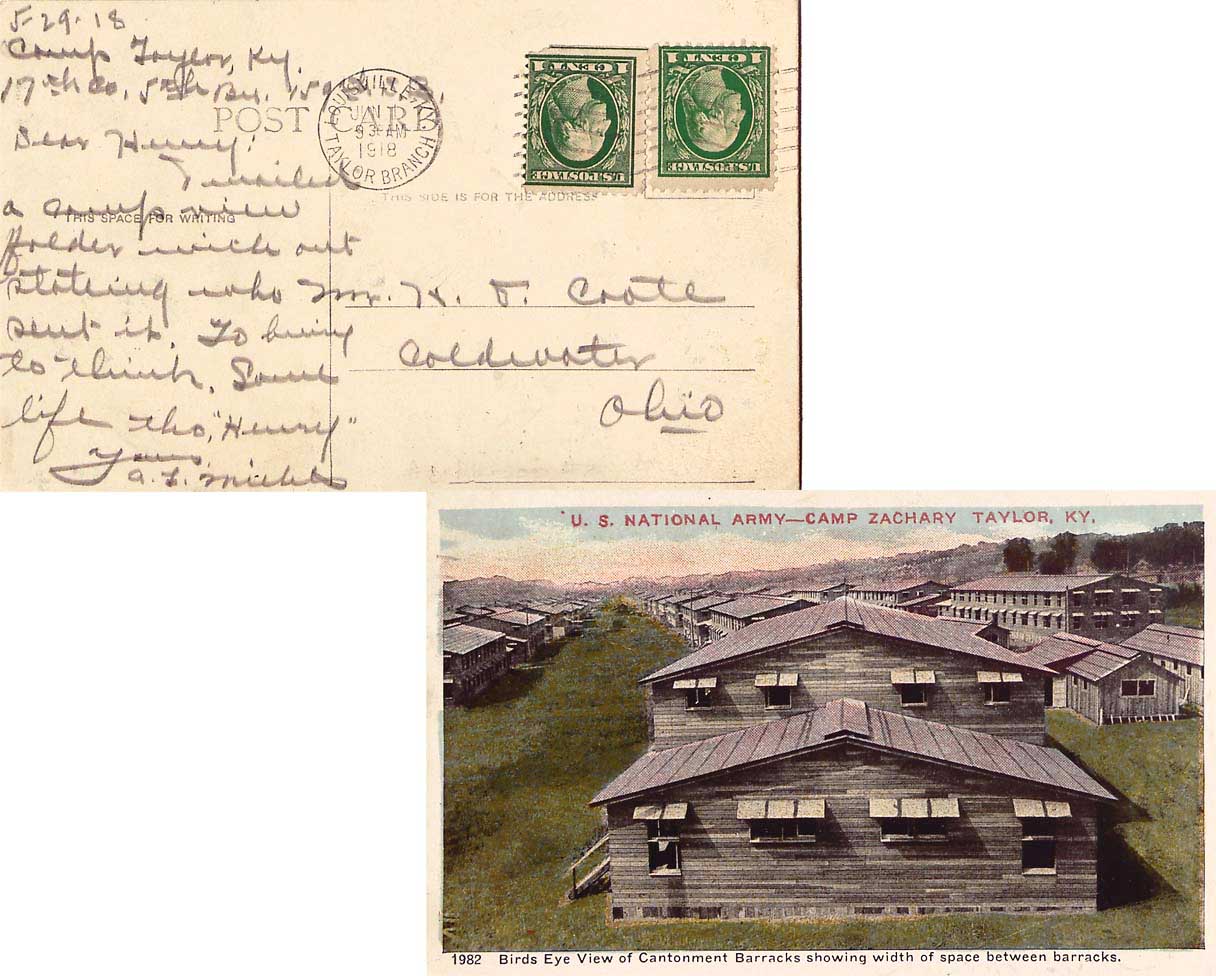 5-29-18
Camp Taylor, Ky.
17th Co, 5th Bn, 159
POST CARD
LOUISVILLE, KY.
JUN 1
930 AM
1918
TAYLOR BRANCH
1 CENT 1
U.S. POSTAGE
1 CENT 1
U.S. POSTAGE
Dear Henry:
I mailed
a camp view
folder with out
stateing who
sent it. To
to think. Some
life tho, "Henry"
Yours
THIS SPACE FOR WRITING
THIS SIDE IS FOR THE ADDRESS
Mr. H. J.
Coldwater
Ohio
U. S. NATIONAL ARMY—CAMP ZACHARY TAYLOR, KY.
1982 Birds Eye View of Cantonment Barracks showing width of space between barracks.